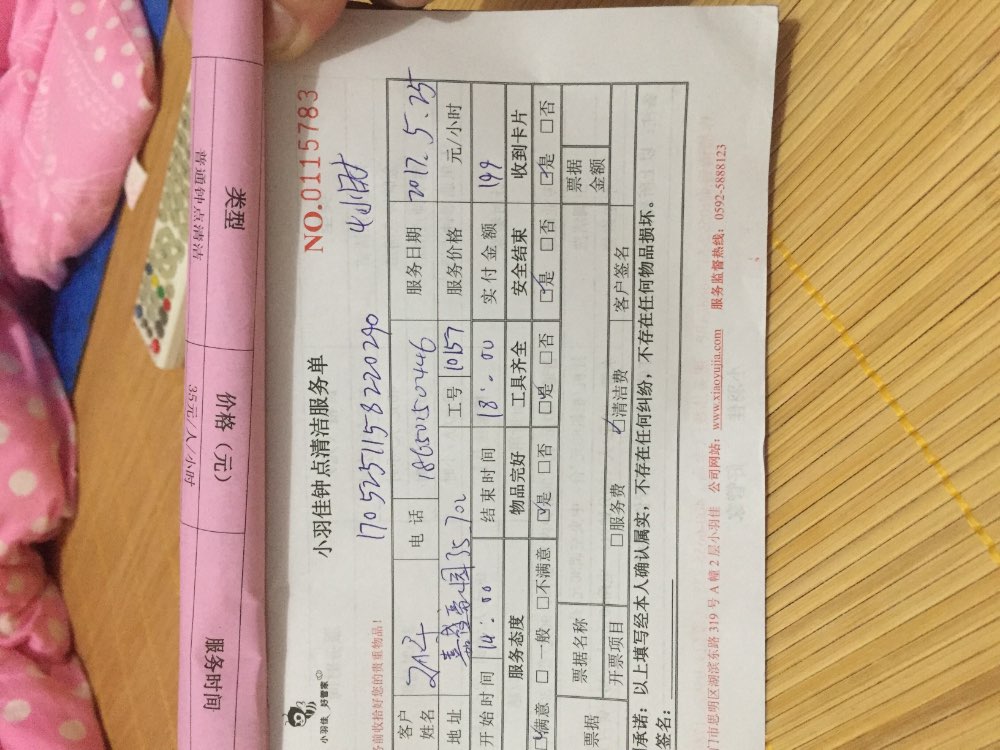 服务时间 价格（元） 类型
35元/人/小时 普通钟点清洁
小羽佳 好管家
小羽佳钟点清洁服务单 NO.0115783
1705251158220290 4小时
务前收拾好您的贵重物品！
客户姓名 电话 18650150446 服务日期 2017.5.25
地址 35 702 工号 1057 服务价格 元/小时
开始时间 14:00 结束时间 18:00 实付金额 199
服务态度 物品完好 工具齐全 安全结束 收到卡片
☑满意 □一般 □不满意 ☑是 □否 ☑是 □否 ☑是 □否 ☑是 □否
票据 票据名称 票据金额
开票项目 □服务费 ☑清洁费 客户签名
承诺：以上填写经本人确认属实，不存在任何纠纷，不存在任何物品损坏。
签名：
门市思明区湖滨东路 319 号 A 幢 2 层小羽佳 公司网站：www.xiaoyujia.com 服务监督热线：0592-5888123